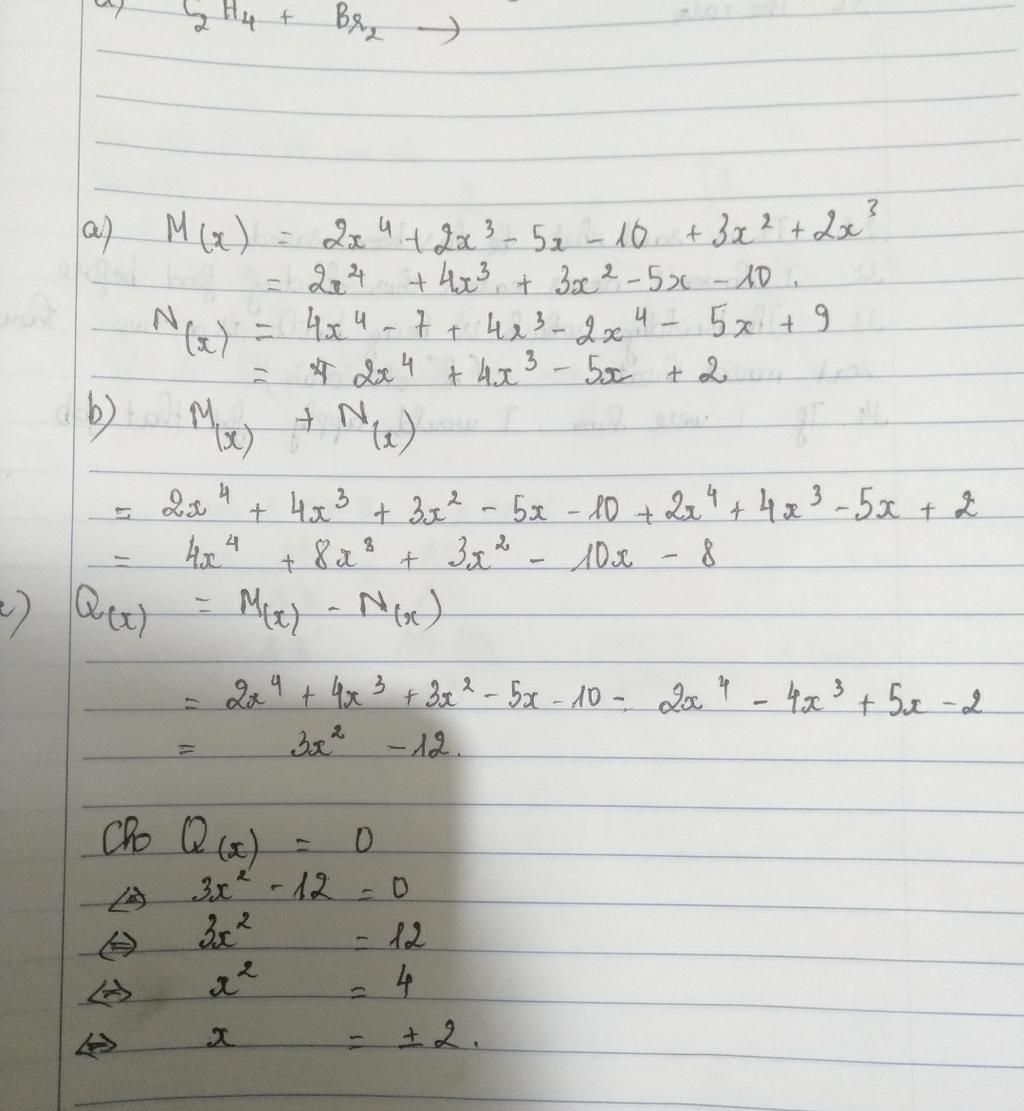 C₂H₄ + Br₂ →
a) M(x) = 2x⁴ + 2x³ - 5x - 10 + 3x² + 2x³
= 2x⁴ + 4x³ + 3x² - 5x - 10.
N(x) = 4x⁴ - 7 + 4x³ - 2x⁴ - 5x + 9
= 2x⁴ + 4x³ - 5x + 2
b) M(x) + N(x)
= 2x⁴ + 4x³ + 3x² - 5x - 10 + 2x⁴ + 4x³ - 5x + 2
= 4x⁴ + 8x³ + 3x² - 10x - 8
c) Q(x) = M(x) - N(x)
= 2x⁴ + 4x³ + 3x² - 5x - 10 - 2x⁴ - 4x³ + 5x - 2
= 3x² - 12.
Cho Q(x) = 0
⇔ 3x² - 12 = 0
⇔ 3x² = 12
⇔ x² = 4
⇔ x = ± 2.